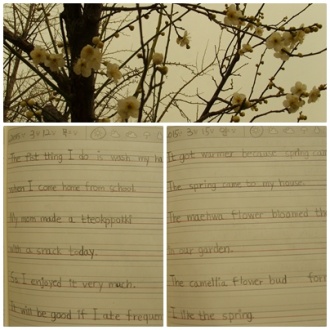 The fist thing I do is wash my ha
when I come home from school.
My mom made a tteokpokki
with a snack today.
So, I enjoyed it very much.
It will be good if I ate frequen
It got warmer because spring com
The spring come to my house.
The maehwa flower bloamed th
in our garden.
The camellia flower bud for
I like the spring.